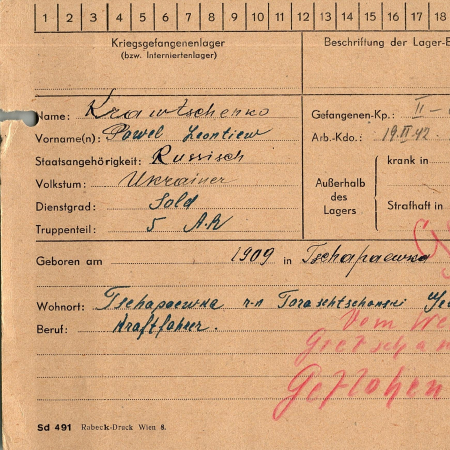 1 2 3 4 5 6 7 8 9 10 11 12 13 14 15 16 17 18
Kriegsgefangenenlager
(bzw. Interniertenlager)
Beschriftung der Lager-E
Name: Krawtschenko
Gefangenen-Kp.: II-
Vorname(n): Pawel Leontiew
Arb.-Kdo.: 19.II.42
Staatsangehörigkeit: Russisch
krank in
Volkstum: Ukrainer
Außerhalb
des
Lagers
Dienstgrad: Sold
Strafhaft in
Truppenteil: 5 A.R
Geboren am 1909 in Tschapaewka
Wohnort: Tschapaewka r-n Toraschtschanski
Beruf: Kraftfahrer.
Vom We
Gretschan
Geflohen
Sd 491 Rabeck-Druck Wien 8.